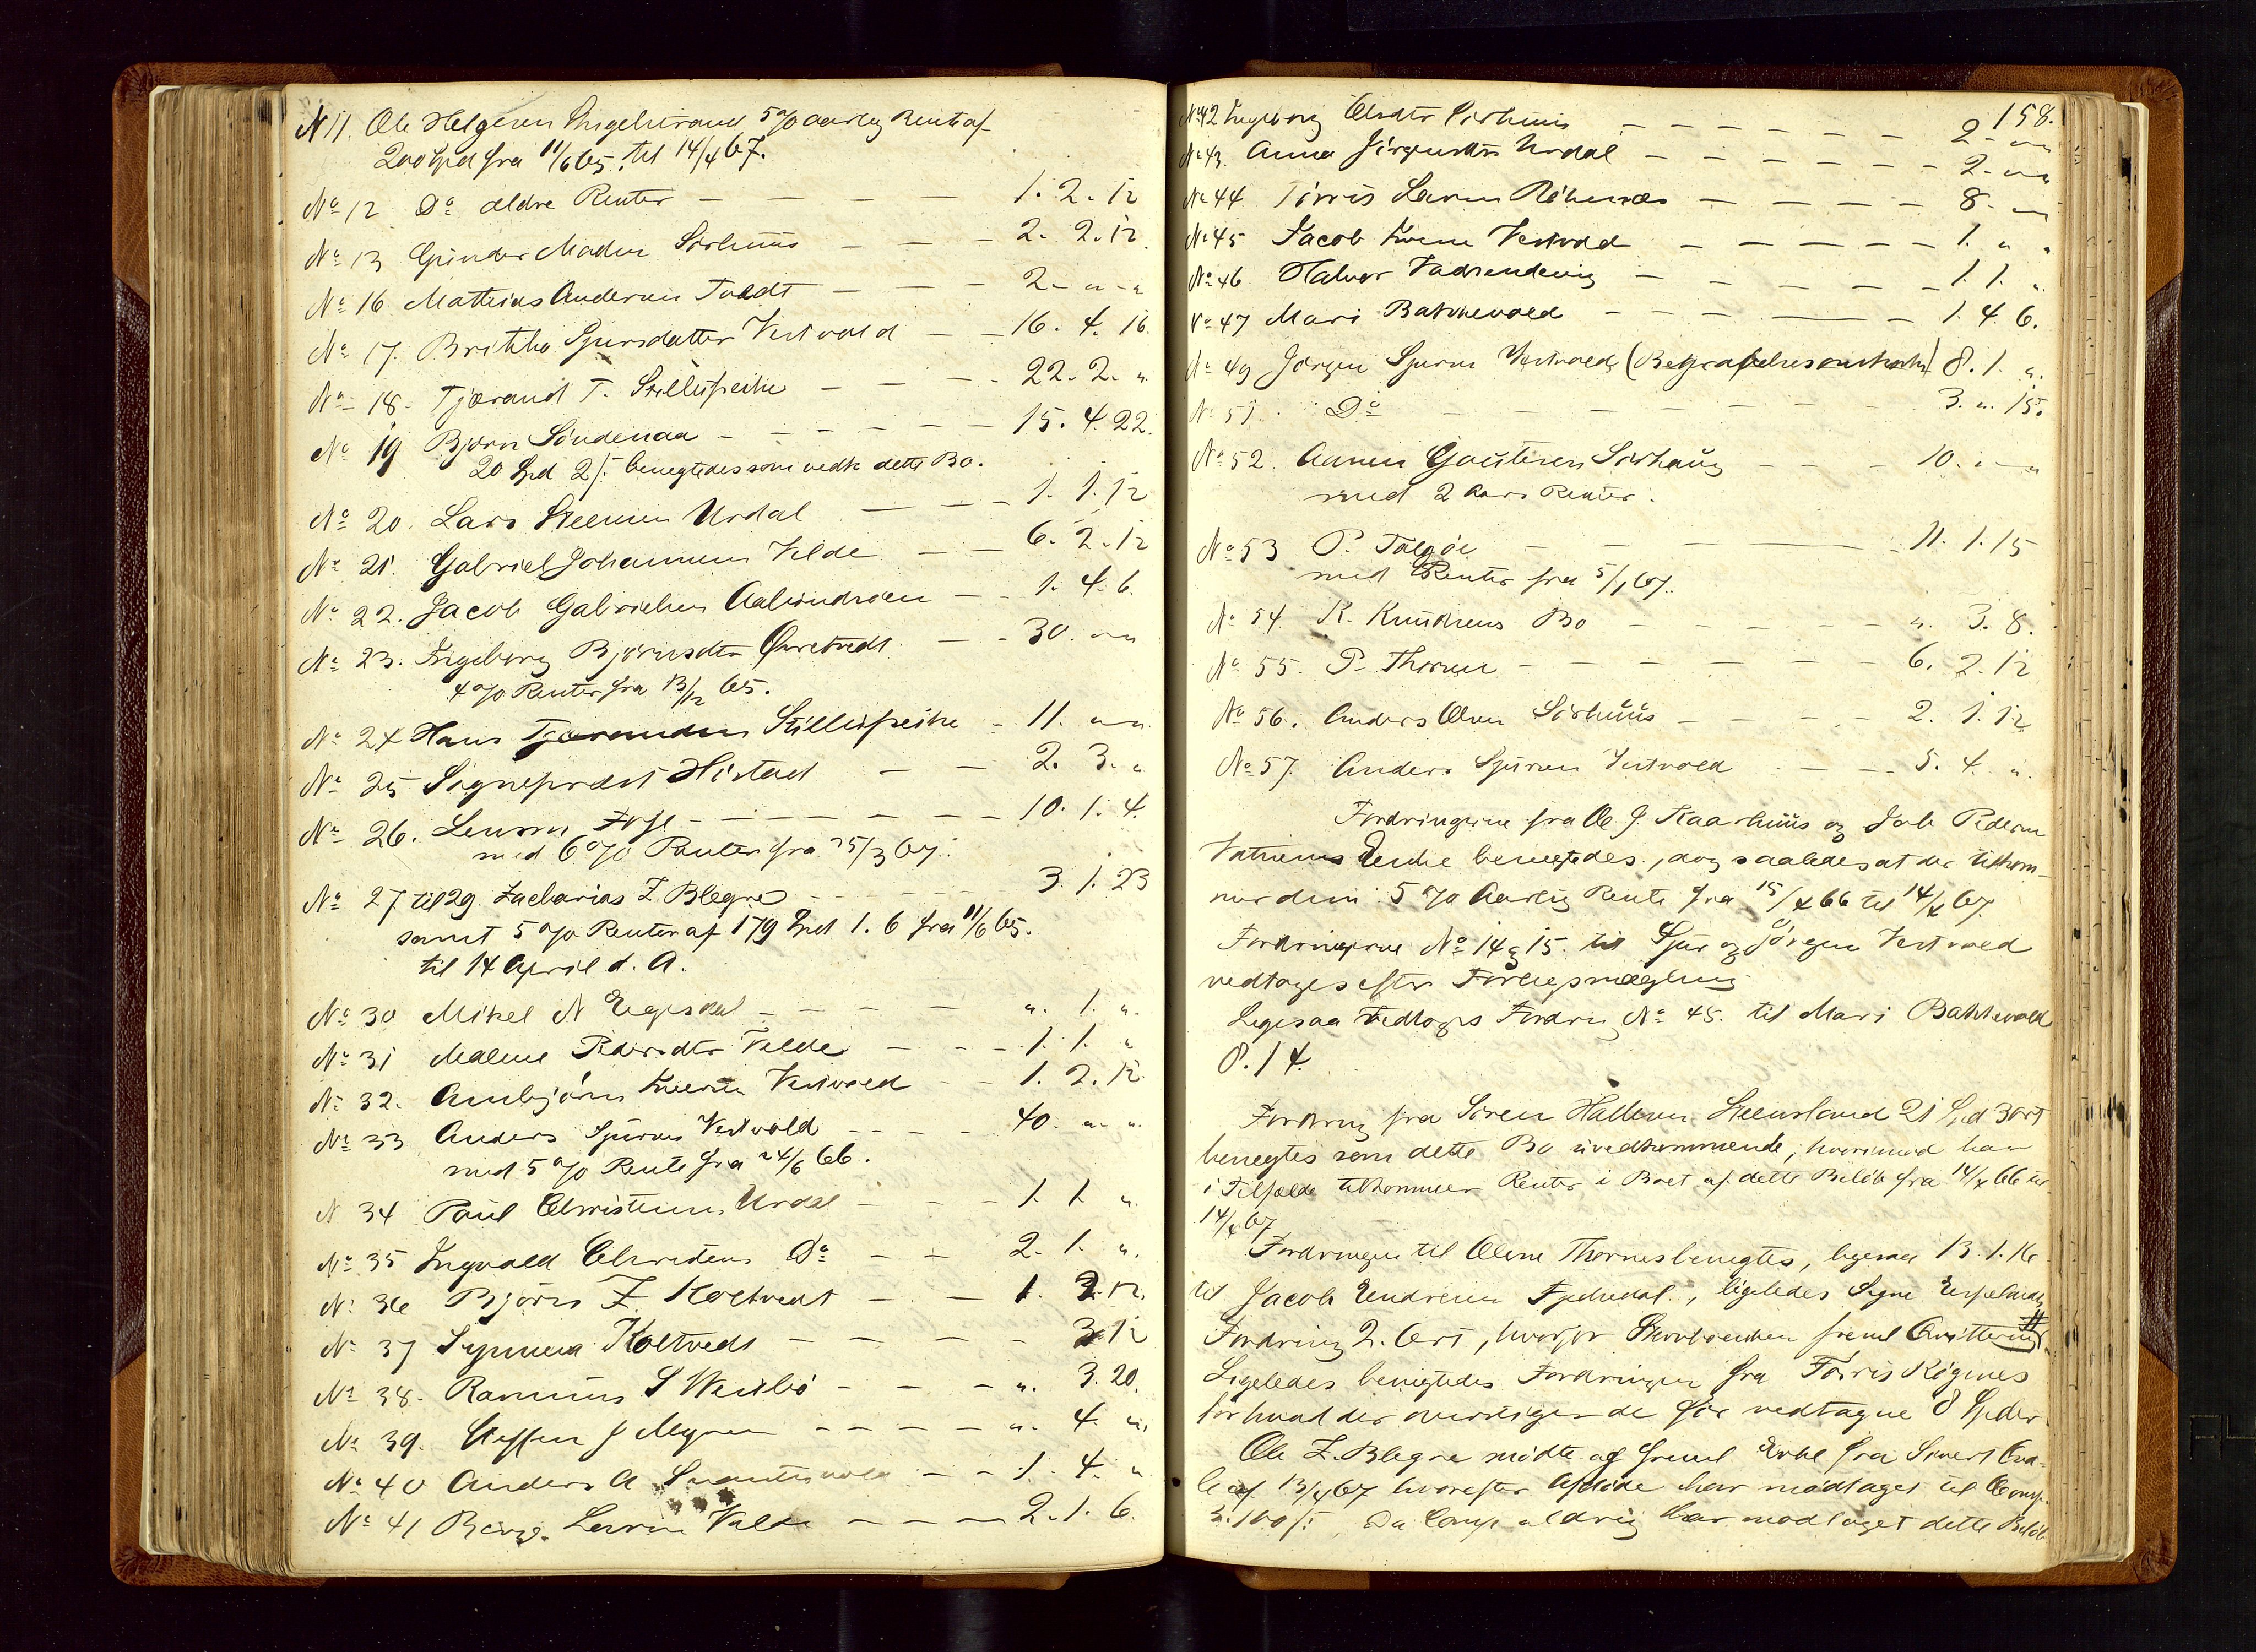 N 11. Ole Helgesen Engelstrand 5 % aarlig Rente af
200 Spd fra 11/6 65. til 14/4 67.
No 12 Do ældre Renter — — — — 1. 2. 12
No 13 Gunder Madsen Sørhuus — — — 2. 2. 12.
No 16 Mathias Andersen Tvedt — — — 2 - „ - „
No 17. Britha Sjursdatter Vestvold — — 16. 4. 16.
No 18. Tjerand T. — — — 22. 2. „
No 19 Bjørn Søndenaa — — — — — 15. 4. 22.
20 Spd 2 /: benegtedes som vedk dette Bo.
No 20. Lars Steensen Urdal — — — 1. 1. 12
No 21. Gabriel Johannesen Velde — — 6. 2. 12
No 22. Jacob Gabrielsen — — 1. 4. 6.
No 23. Ingeborg Bjørnsdtr — — 30. „ „
4 % Renter fra 13/12 65.
No 24 Hans — 11. „ „
No 25 Sogneprest Histad — — 2. 3. „
No 26. — — — — — — 10. 1. 4.
med 6 % Renter fra 25/3 67.
No 27 til 29. Zacharias Z. Blegre — — — — 3. 1. 23
samt 5 % Renter af 179 Spd 1. 6 fra 11/6 65.
til 14 April d. A.
No 30 Mikel N — — — — „. 1. „.
No 31 Malene Pedersdtr Velde — — — 1. 1. „
No 32. Anbjørn Vestvold — — 1. 2. 12
No 33 Anders Sjursen Vestvold — — — — 40. „. „.
med 5 % Rente fra 24/6 66.
N 34 Poul Christensen Urdal — — — 1. 1. „
No 35 Ingvald Christensen Do — — 2. 1. „.
No 36 Bjørn Z. Koltvedt — — 1. 2. 12.
No 37 Koltvedt — — — — 3. 12
No 38. Rasmus S — — — „. 3. 20.
No 39. Steffen J — — — — — „. 4. „.
No 40 Anders A — — 1. 4. „
No 41 Larsen Velde — — — 2. 1. 6.
158.
No 42 Ingeborg Olsdtr Sørhuus — — — — — — 2 - „ „
No 43. Anna Jørgensdtr Urdal — — — — — — 2. „ „
No 44 Tørris Larsen — — — — 8. „
No 45 Jacob Vestvold — — — — — 1. „ „
No 46 Halvor — — — — — 1. 1. „
No 47 Mari Bakkevold — — — — 1. 4. 6.
No 49 Jørgen Sjursen Vestvold (Begravelsesomkostn) 8. 1. „.
No 51. Do — — — — — — 3. „. 15.
No 52. Aanen Goutesen Sørhaug — — — 10. „ — „
med 2 Aars Renter.
No 53 P. Talgøe — — — — 11. 1. 15
med Renter fra 5/1 67.
No 54 K. Knudsens Bo — — — — „. 3. 8.
No 55. P. Thorsen — — — — — 6. 2. 12
No 56. Anders Olsen Sørhuus — — — — 2. 1. 12
No 57. Anders Sjursen Vestvold — — — 5. 4. „.
Fordringerne fra Ole J. Kaarhuus og Job Pedersen
Enke benegtedes, dog saaledes at der tilkom-
mer dem 5 % Aarlig Rente fra 15/4 66 til 14/4 67.
Fordringerne No 14 & 15. til Sjur og Jørgen Vestvold
vedtoges efter Forligsmægling
Ligesaa vedtoges Fordring No 48. til Mari Bakkevold
8. 1 4.
Fordring fra Søren Hallesen Steensland 21 Spd 3 Ort
benegtes som dette Bo uvedkommende, hvorimod han
i Tilfælde tilkommer Renter i Boet af dette Beløb fra 14/4 66 til
14/4 67
Fordringen til Olene Thornes benegtes, ligesaa 13. 1. 16
til Jacob Endresen , ligeledes Signe Espelands
Fordring 2. Ort, hvorfor Stervboenken freml Qvittering #
Ligeledes benegtedes Fordringen fra Tørris
for hvad der overstiger de før vedtagne 8 Spdlr
Ole Z. Blegre mødte og freml fra Sivert
af 13/4 67 hvorefter Afdøde har modtaget til Comp.
3. 100 /: Da Comp aldrig har modtaget dette Beløb